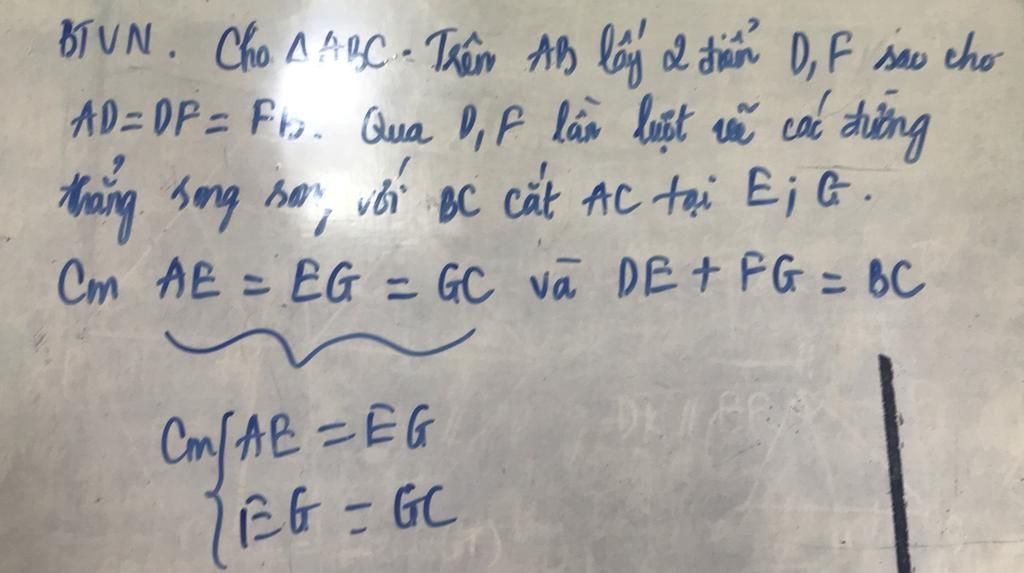 BTVN. Cho ΔABC. Trên AB lấy 2 điểm D, F sao cho
AD = DF = FB. Qua D, F lần lượt vẽ các đường
thẳng song song với BC cắt AC tại E; G.
Cm AE = EG = GC và DE + FG = BC
Cm { AE = EG
EG = GC